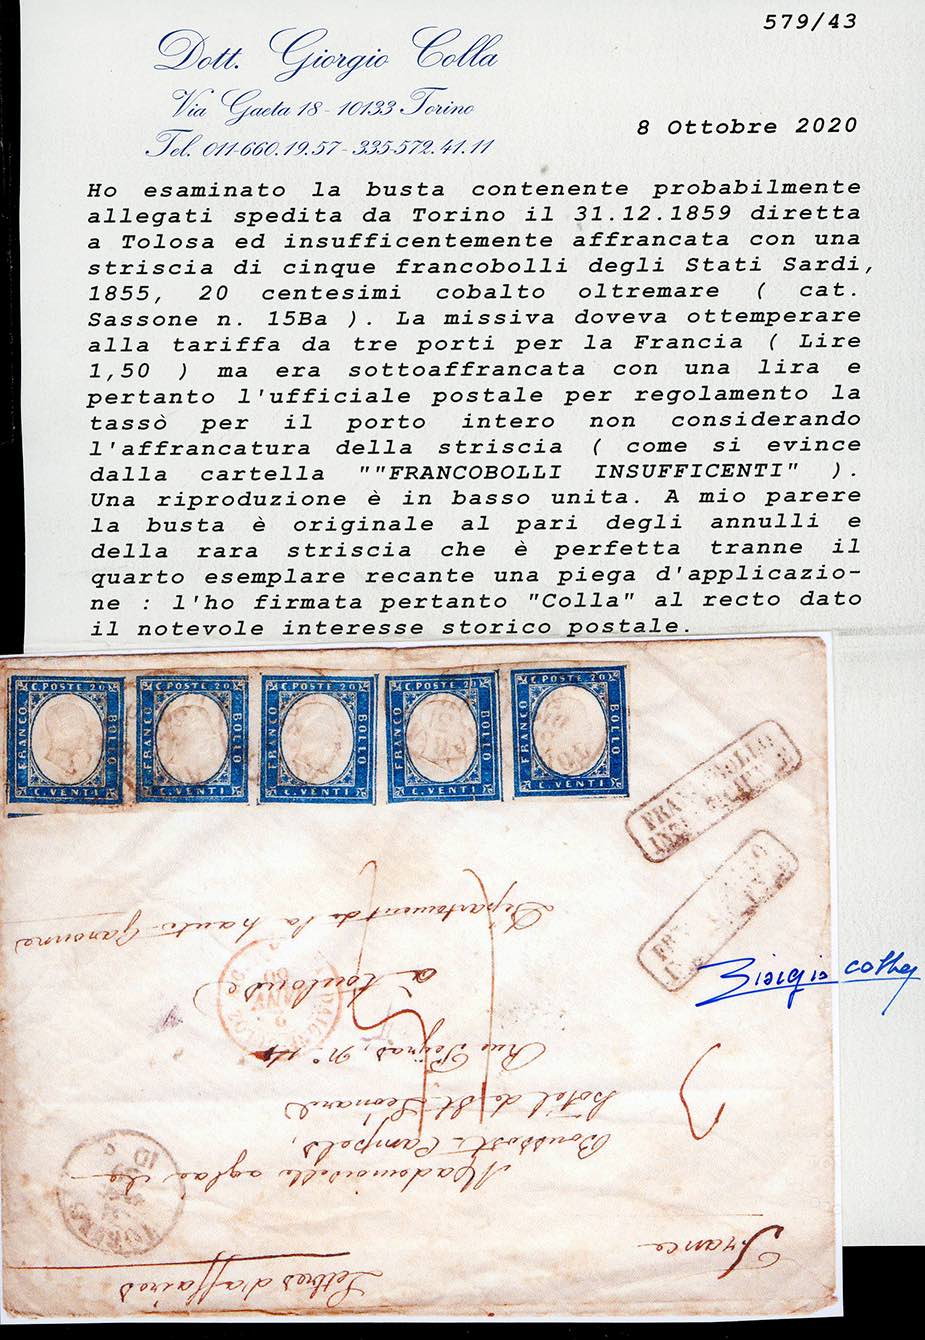 579/43
Dott. Giorgio Colla
Via Gaeta 18 - 10133 Torino
Tel. 011-660.19.57 - 335-572.41.11
8 Ottobre 2020
Ho esaminato la busta contenente probabilmente
allegati spedita da Torino il 31.12.1859 diretta
a Tolosa ed insufficentemente affrancata con una
striscia di cinque francobolli degli Stati Sardi,
1855, 20 centesimi cobalto oltremare ( cat.
Sassone n. 15Ba ). La missiva doveva ottemperare
alla tariffa da tre porti per la Francia ( Lire
1,50 ) ma era sottoaffrancata con una lira e
pertanto l'ufficiale postale per regolamento la
tassò per il porto intero non considerando
l'affrancatura della striscia ( come si evince
dalla cartella ""FRANCOBOLLI INSUFFICENTI" ).
Una riproduzione è in basso unita. A mio parere
la busta è originale al pari degli annulli e
della rara striscia che è perfetta tranne il
quarto esemplare recante una piega d'applicazio-
ne : l'ho firmata pertanto "Colla" al recto dato
il notevole interesse storico postale.
C. POSTE 20 FRANCO BOLLO C. VENTI
C. POSTE 20 FRANCO BOLLO C. VENTI
C. POSTE 20 FRANCO BOLLO C. VENTI
C. POSTE 20 FRANCO BOLLO C. VENTI
C. POSTE 20 FRANCO BOLLO C. VENTI
Giorgio Colla
Lettres d'affaires
France
Mademoiselle aglaé de
hôtel de St. Léonard
Rue Peyras, n° 14
a toulouse
Département de la haute Garonne
TORINO
3